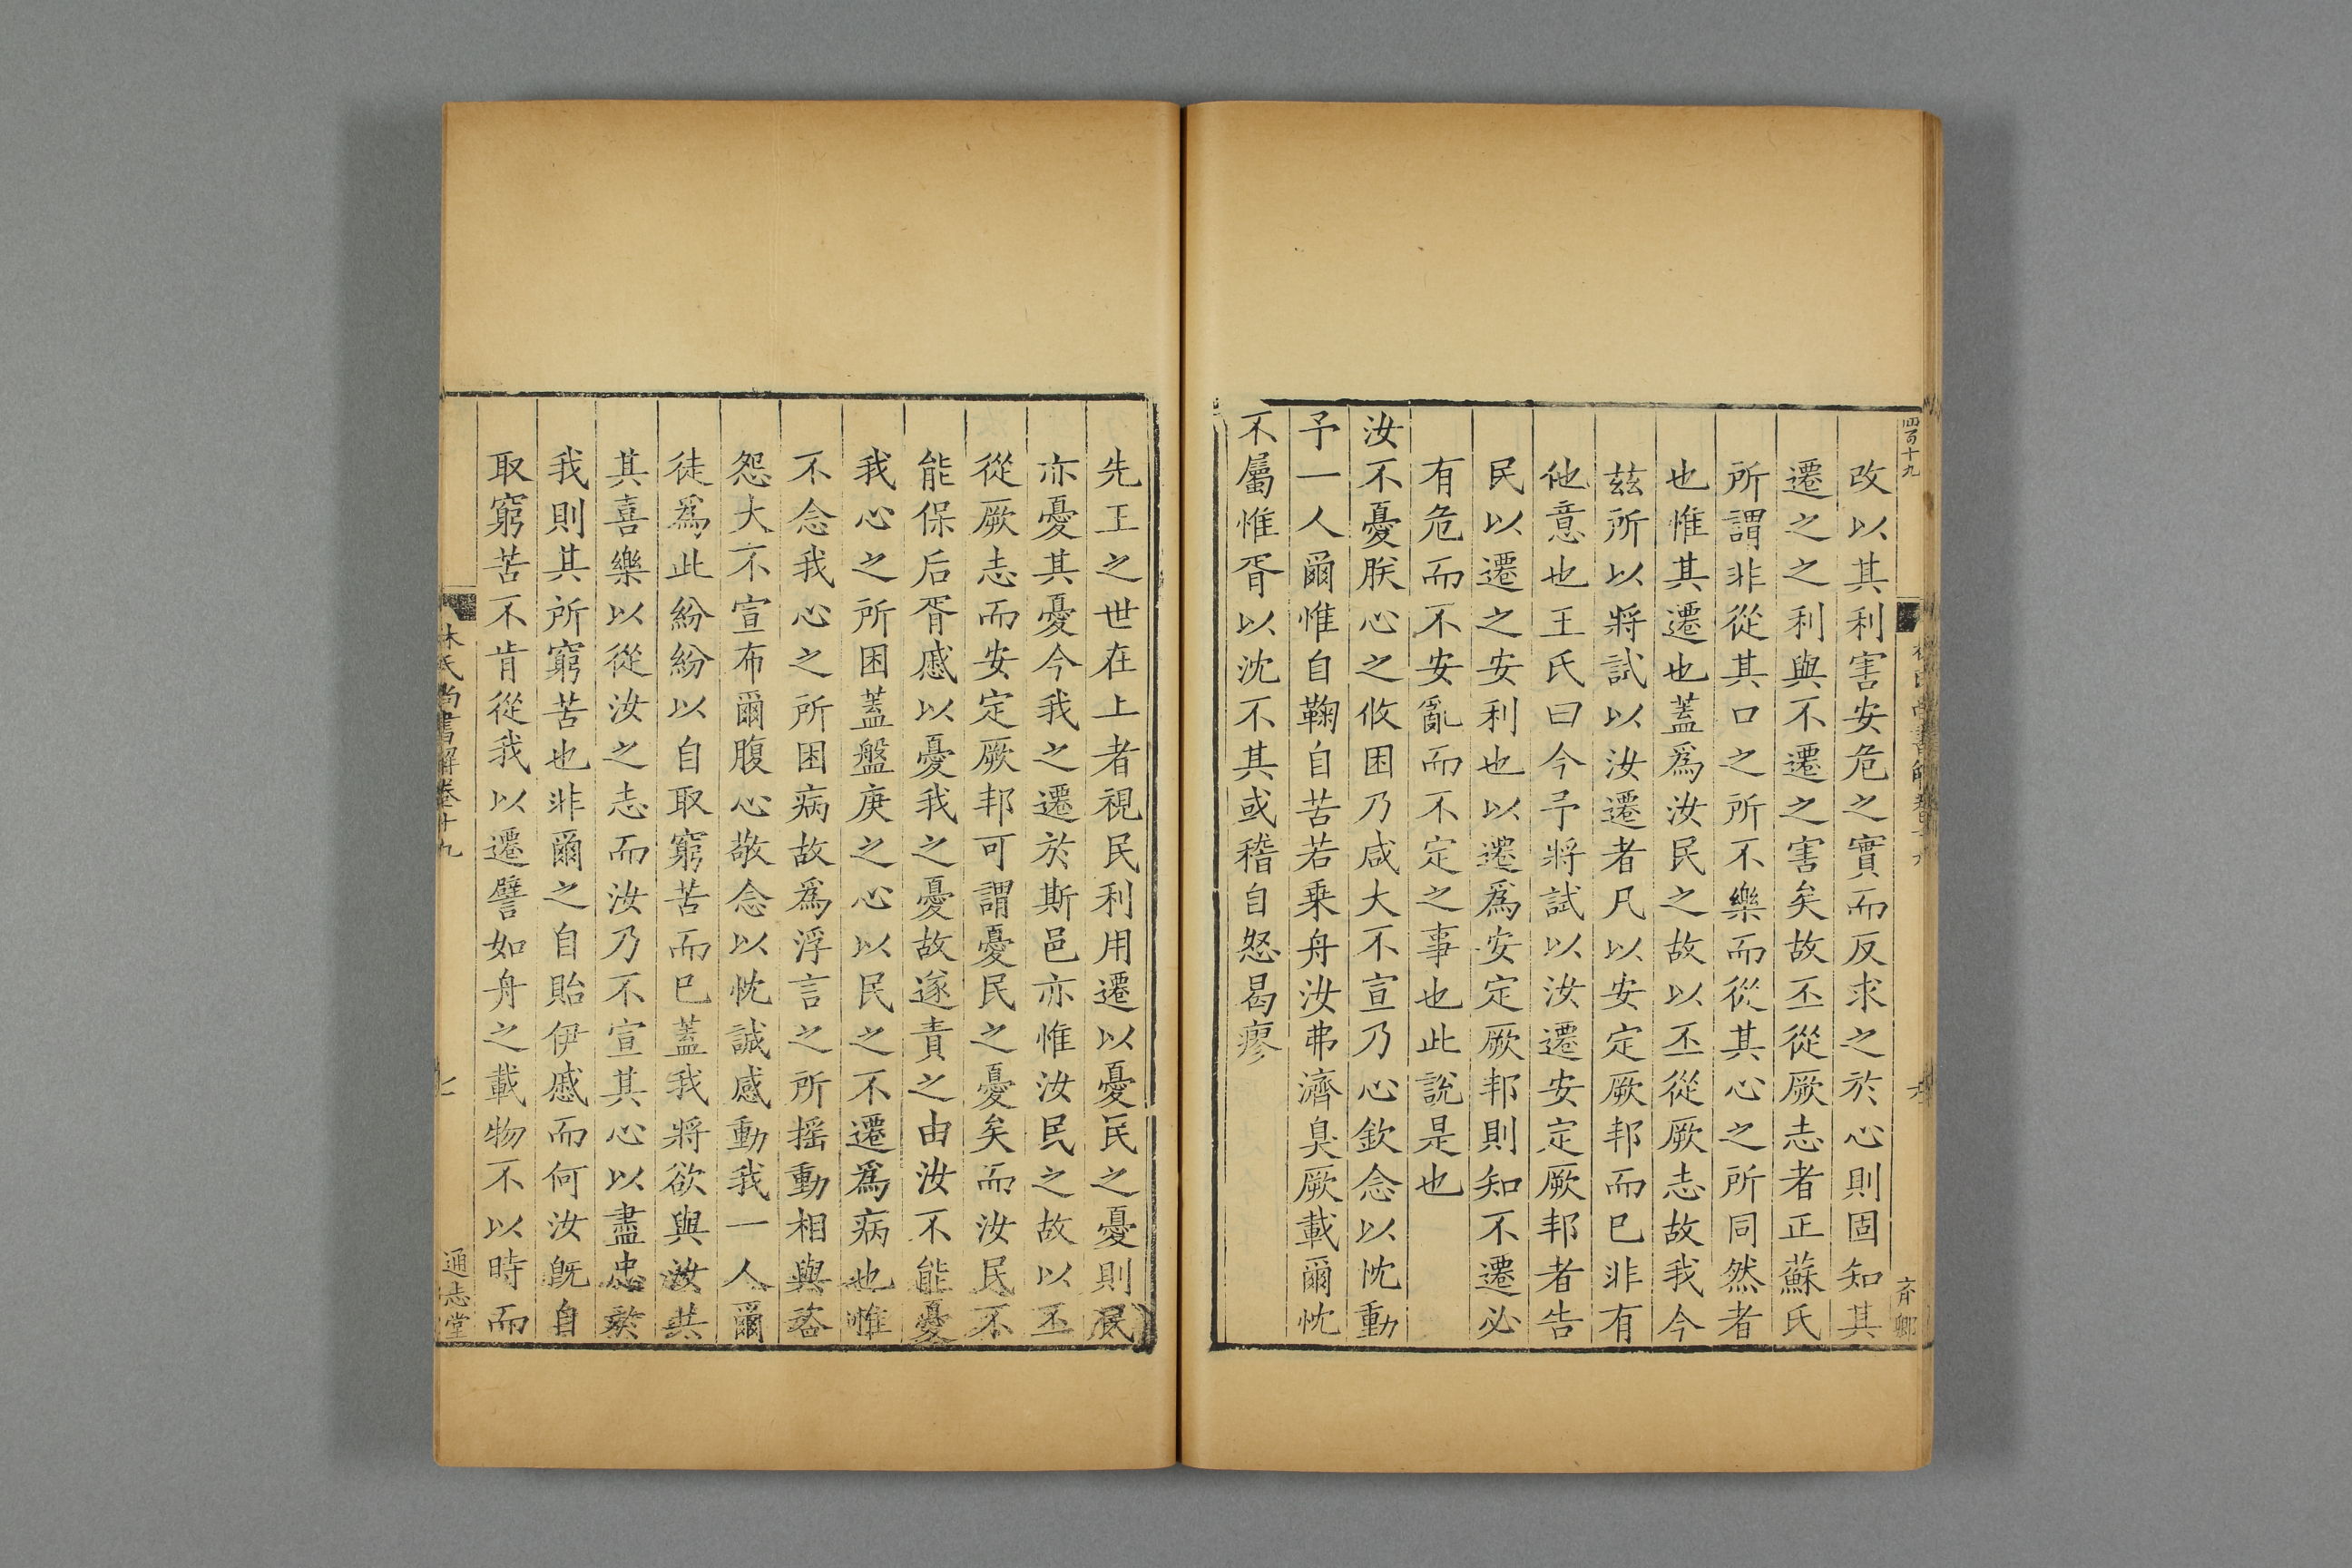 四百十九
改以其利害安危之實而反求之於心則固知其
遷之之利與不遷之害矣故丕從厥志者正蘇氏
所謂非從其口之所不樂而從其心之所同然者
也惟其遷也蓋爲汝民之故以丕從厥志故我今
茲所以將試以汝遷者凡以安定厥邦而已非有
他意也王氏曰今予將試以汝遷安定厥邦者告
民以遷之安利也以遷爲安定厥邦則知不遷必
有危而不安亂而不定之事也此說是也
汝不憂朕心之攸困乃咸大不宣乃心欽念以忱動
予一人爾惟自鞠自苦若乗舟汝弗濟臭厥載爾忱
不屬惟胥以沈不其或稽自怒曷瘳
先王之世在上者視民利用遷以憂民之憂則民
亦憂其憂今我之遷於斯邑亦惟汝民之故以丕
從厥志而安定厥邦可謂憂民之憂矣而汝民不
能保后胥慼以憂我之憂故遂責之由汝不能憂
我心之所困蓋盤庚之心以民之不遷爲病也惟
不念我心之所困病故爲浮言之所搖動相與咨
怨大不宣布爾腹心敬念以忱誠感動我一人爾
徒爲此紛紛以自取窮苦而已蓋我將欲與汝共
其喜樂以從汝之志而汝乃不宣其心以盡忠於
我則其所窮苦也非爾之自貽伊慼而何汝旣自
取窮苦不肯從我以遷譬如舟之載物不以時而
林氏尚書解卷十九
通志堂